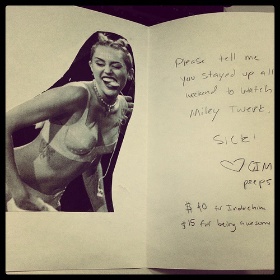 Please tell me
you stayed up all
weekend to watch
Miley Twerk.
Sick!
♡ GIM
peeps
$40 for Indochin
$15 for being awesome